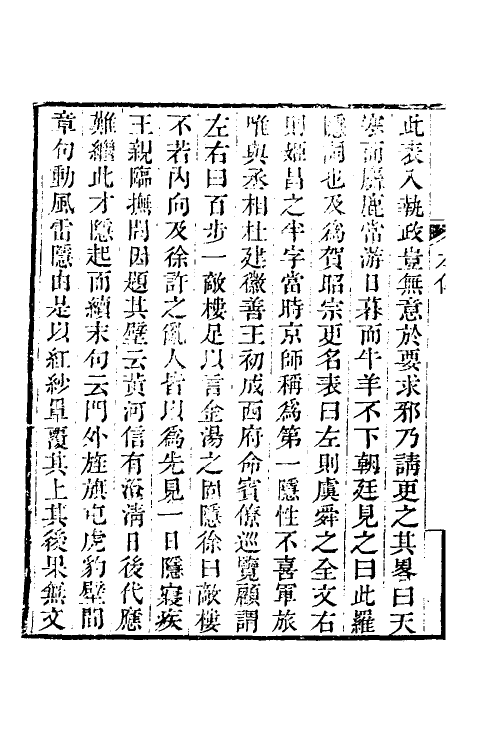 此表入執政豈無意於要求邪乃請更之其畧曰天
寒而麋鹿當游日暮而牛羊不下朝廷見之曰此羅
隱詞也及爲賀昭宗更名表曰左則虞舜之全文右
則姬昌之半字當時京師稱爲第一隱性不喜軍旅
唯與丞相杜建徽善王初成西府命賓僚巡覽顧謂
左右曰百步一敵樓足以言金湯之固隱徐曰敵樓
不若內向及徐許之亂人皆以爲先見一日隱寢疾
王親臨撫問因題其壁云黃河信有澄清日後代應
難繼此才隱起而續末句云門外旌旗屯虎豹壁間
章句動風雷隱由是以紅紗罩覆其上其後果無文